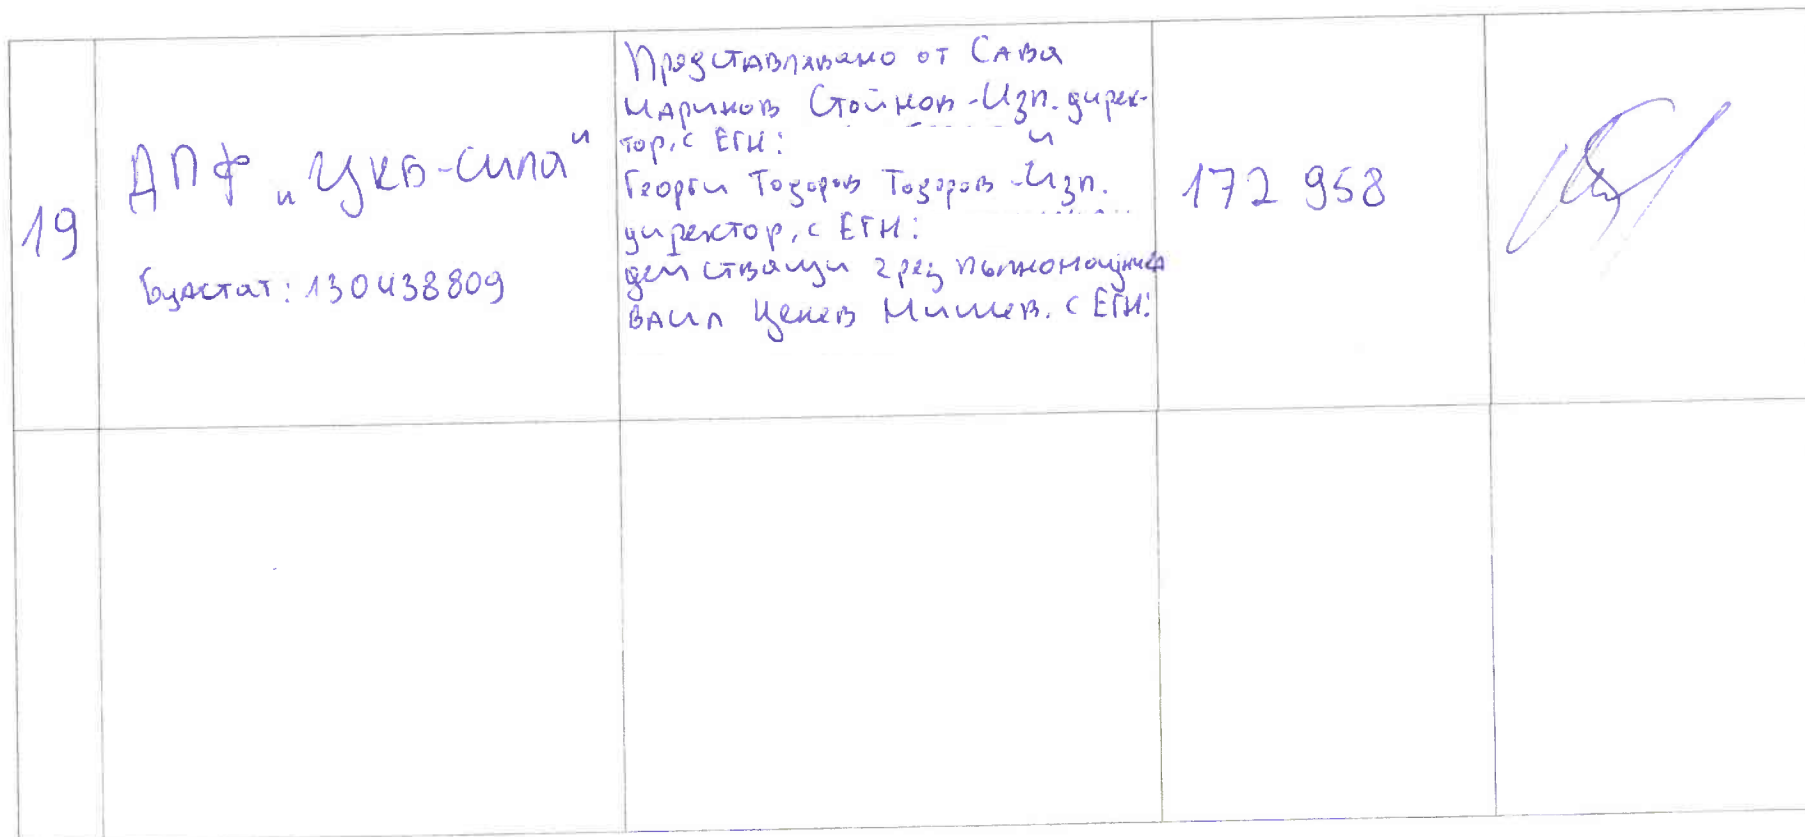 19
ДПФ „ЦКБ-Сила"
Булстат: 130438809
Представлявано от Сава
Маринов Стойнов -Изп. дирек-
тор, с ЕГН: и
Георги Тодоров Тодоров -Изп.
директор, с ЕГН:
действащи чрез пълномощника
Васил Ценев Мишев. с ЕГН:
172 958